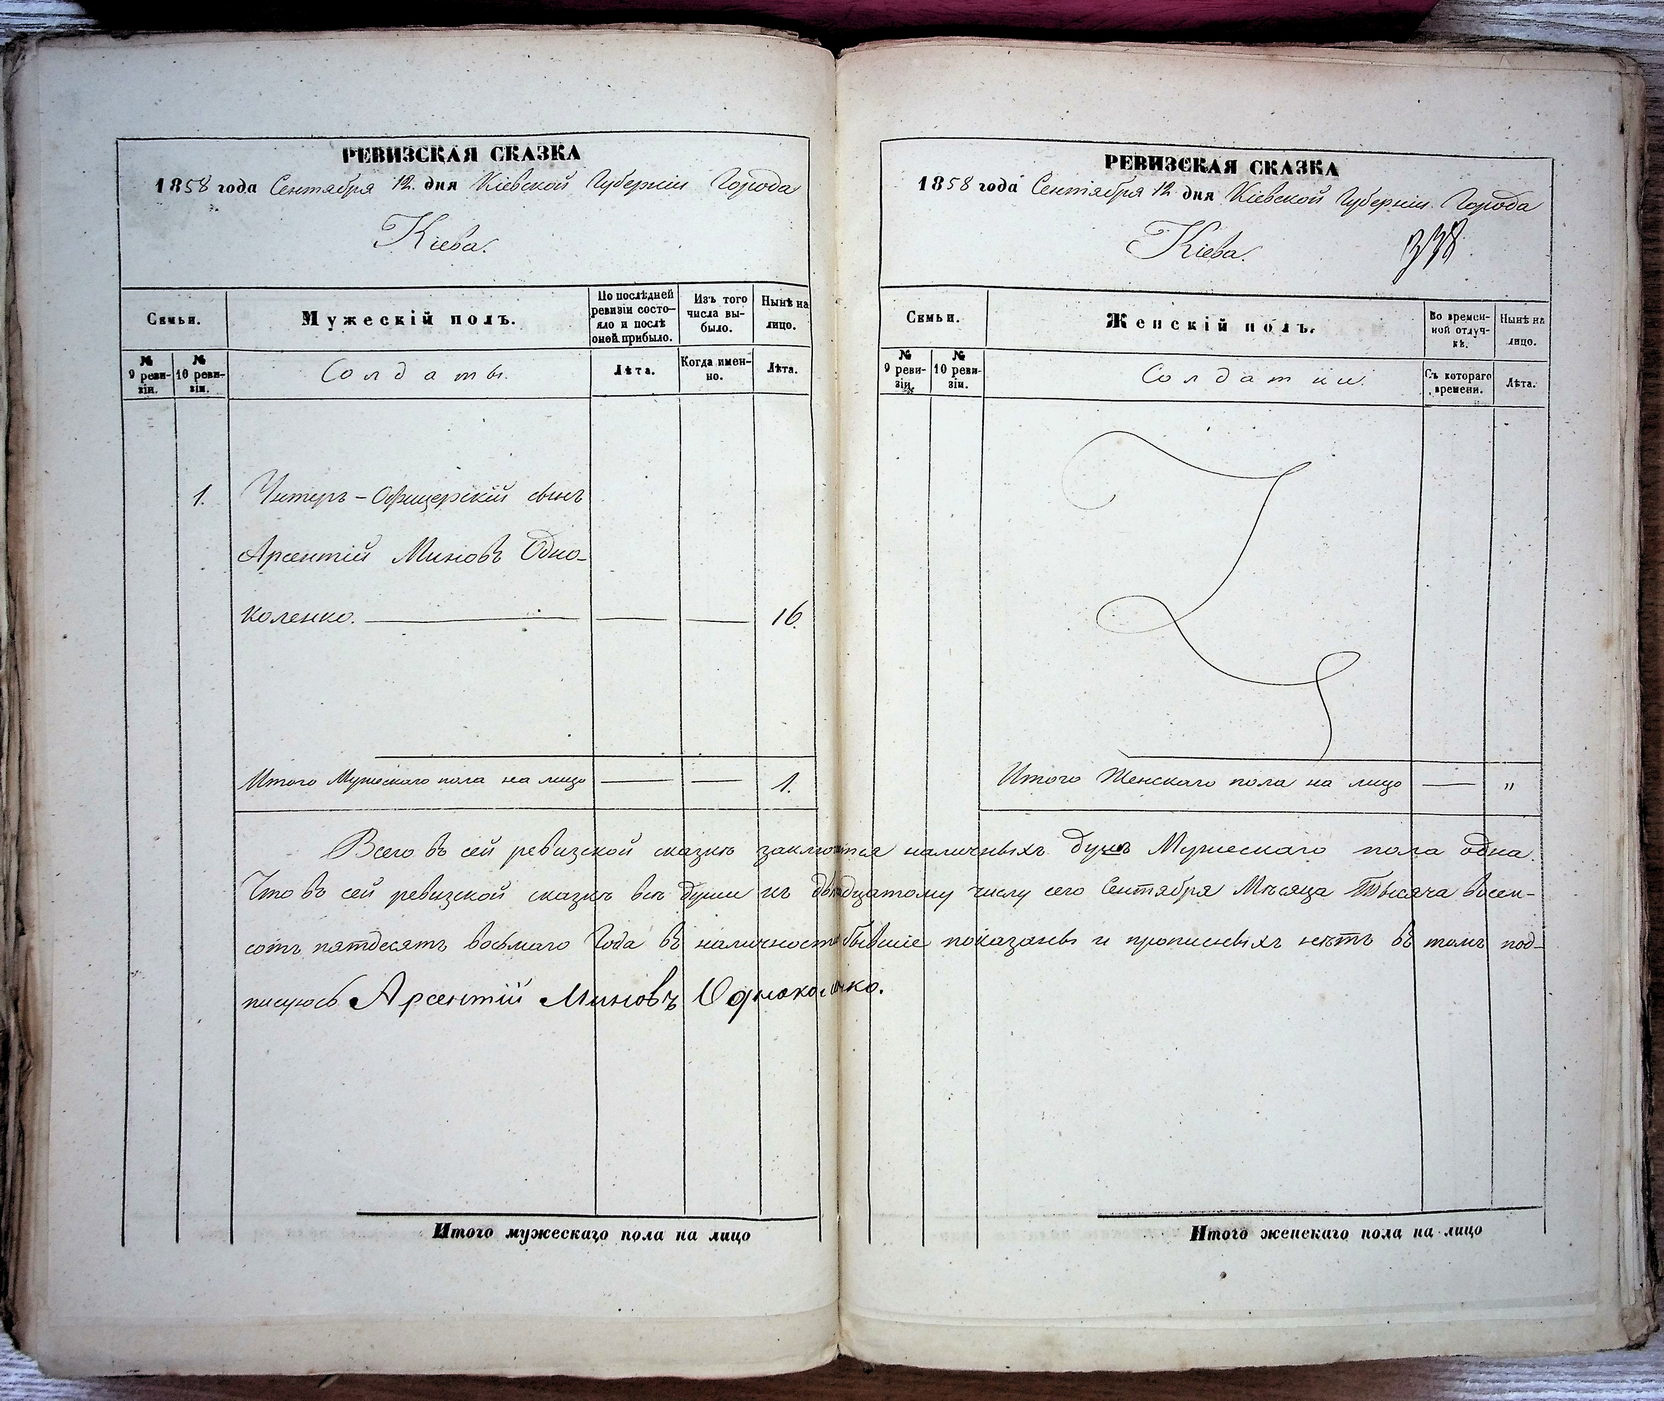 РЕВИЗСКАЯ СКАЗКА
1858 года Сентября 12. дня Кіевской Губерніи Города
Кіева.
Семьи.
Мужескій полъ.
По послѣдней ревизіи состо-
яло и послѣ
оней прибыло.
Изъ того
числа вы-
было.
Нынѣ на
лицо.
№
9 реви-
зіи.
№
10 реви-
зіи.
Солдаты.
Лѣта.
Когда имен-
но.
Лѣта.
1.
Унтеръ-Офицерскій сынъ
Арсентій Миновъ Одно-
коленко.
16.
Итого Мужескаго пола на лицо
1.
РЕВИЗСКАЯ СКАЗКА
1858 года Сентября 12 дня Кіевской Губерніи Города
Кіева.
338
Семьи.
Женскій полъ.
Во времен-
ной отлуч-
кѣ.
Нынѣ на
лицо.
№
9 реви-
зіи.
№
10 реви-
зіи.
Солдатки.
Съ котораго
времени.
Лѣта.
Итого Женскаго пола на лицо
"
Всего въ сей ревизской сказкѣ заключается наличныхъ душъ Мужескаго пола одна.
Что въ сей ревизской сказкѣ всѣ души къ двадцатому числу сего Сентября Мѣсяца Тысяча восем-
сотъ пятдесятъ восьмаго Года въ наличности бывшіе показаны и прописныхъ нѣтъ въ томъ под-
писуюсь Арсентій Миновъ Одноколенко.
Итого мужескаго пола на лицо
Итого женскаго пола на лицо